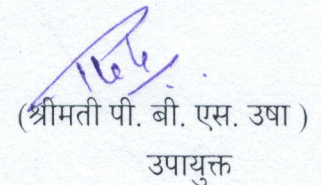 (श्रीमती पी. बी. एस. उषा )
उपायुक्त